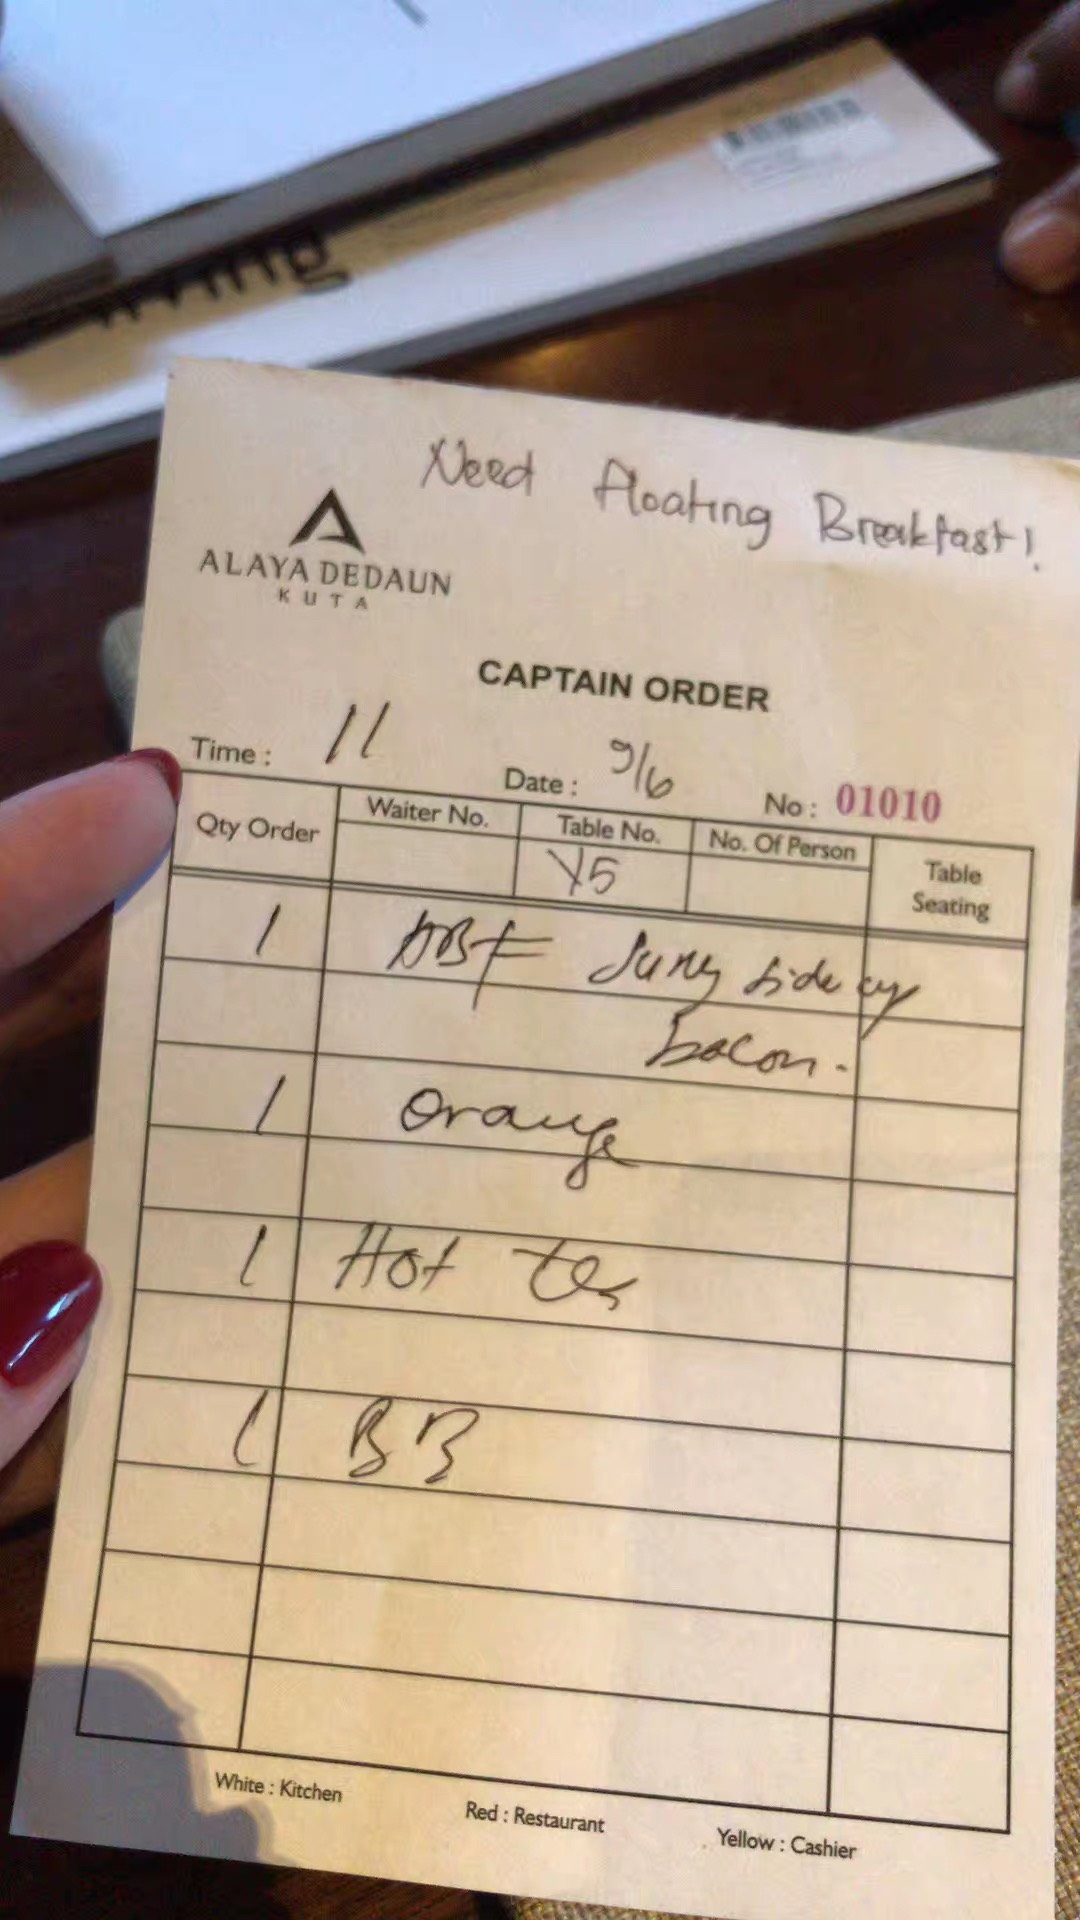 Need Floating Breakfast!
ALAYA DEDAUN
KUTA
CAPTAIN ORDER
Time : 11
Date : 9/6
No : 01010
Qty Order
Waiter No.
Table No.
No. Of Person
Table Seating
Y5
1 ABF Suny side up
bacon.
1 Orange
1 Hot tea
1 BB
White : Kitchen
Red : Restaurant
Yellow : Cashier